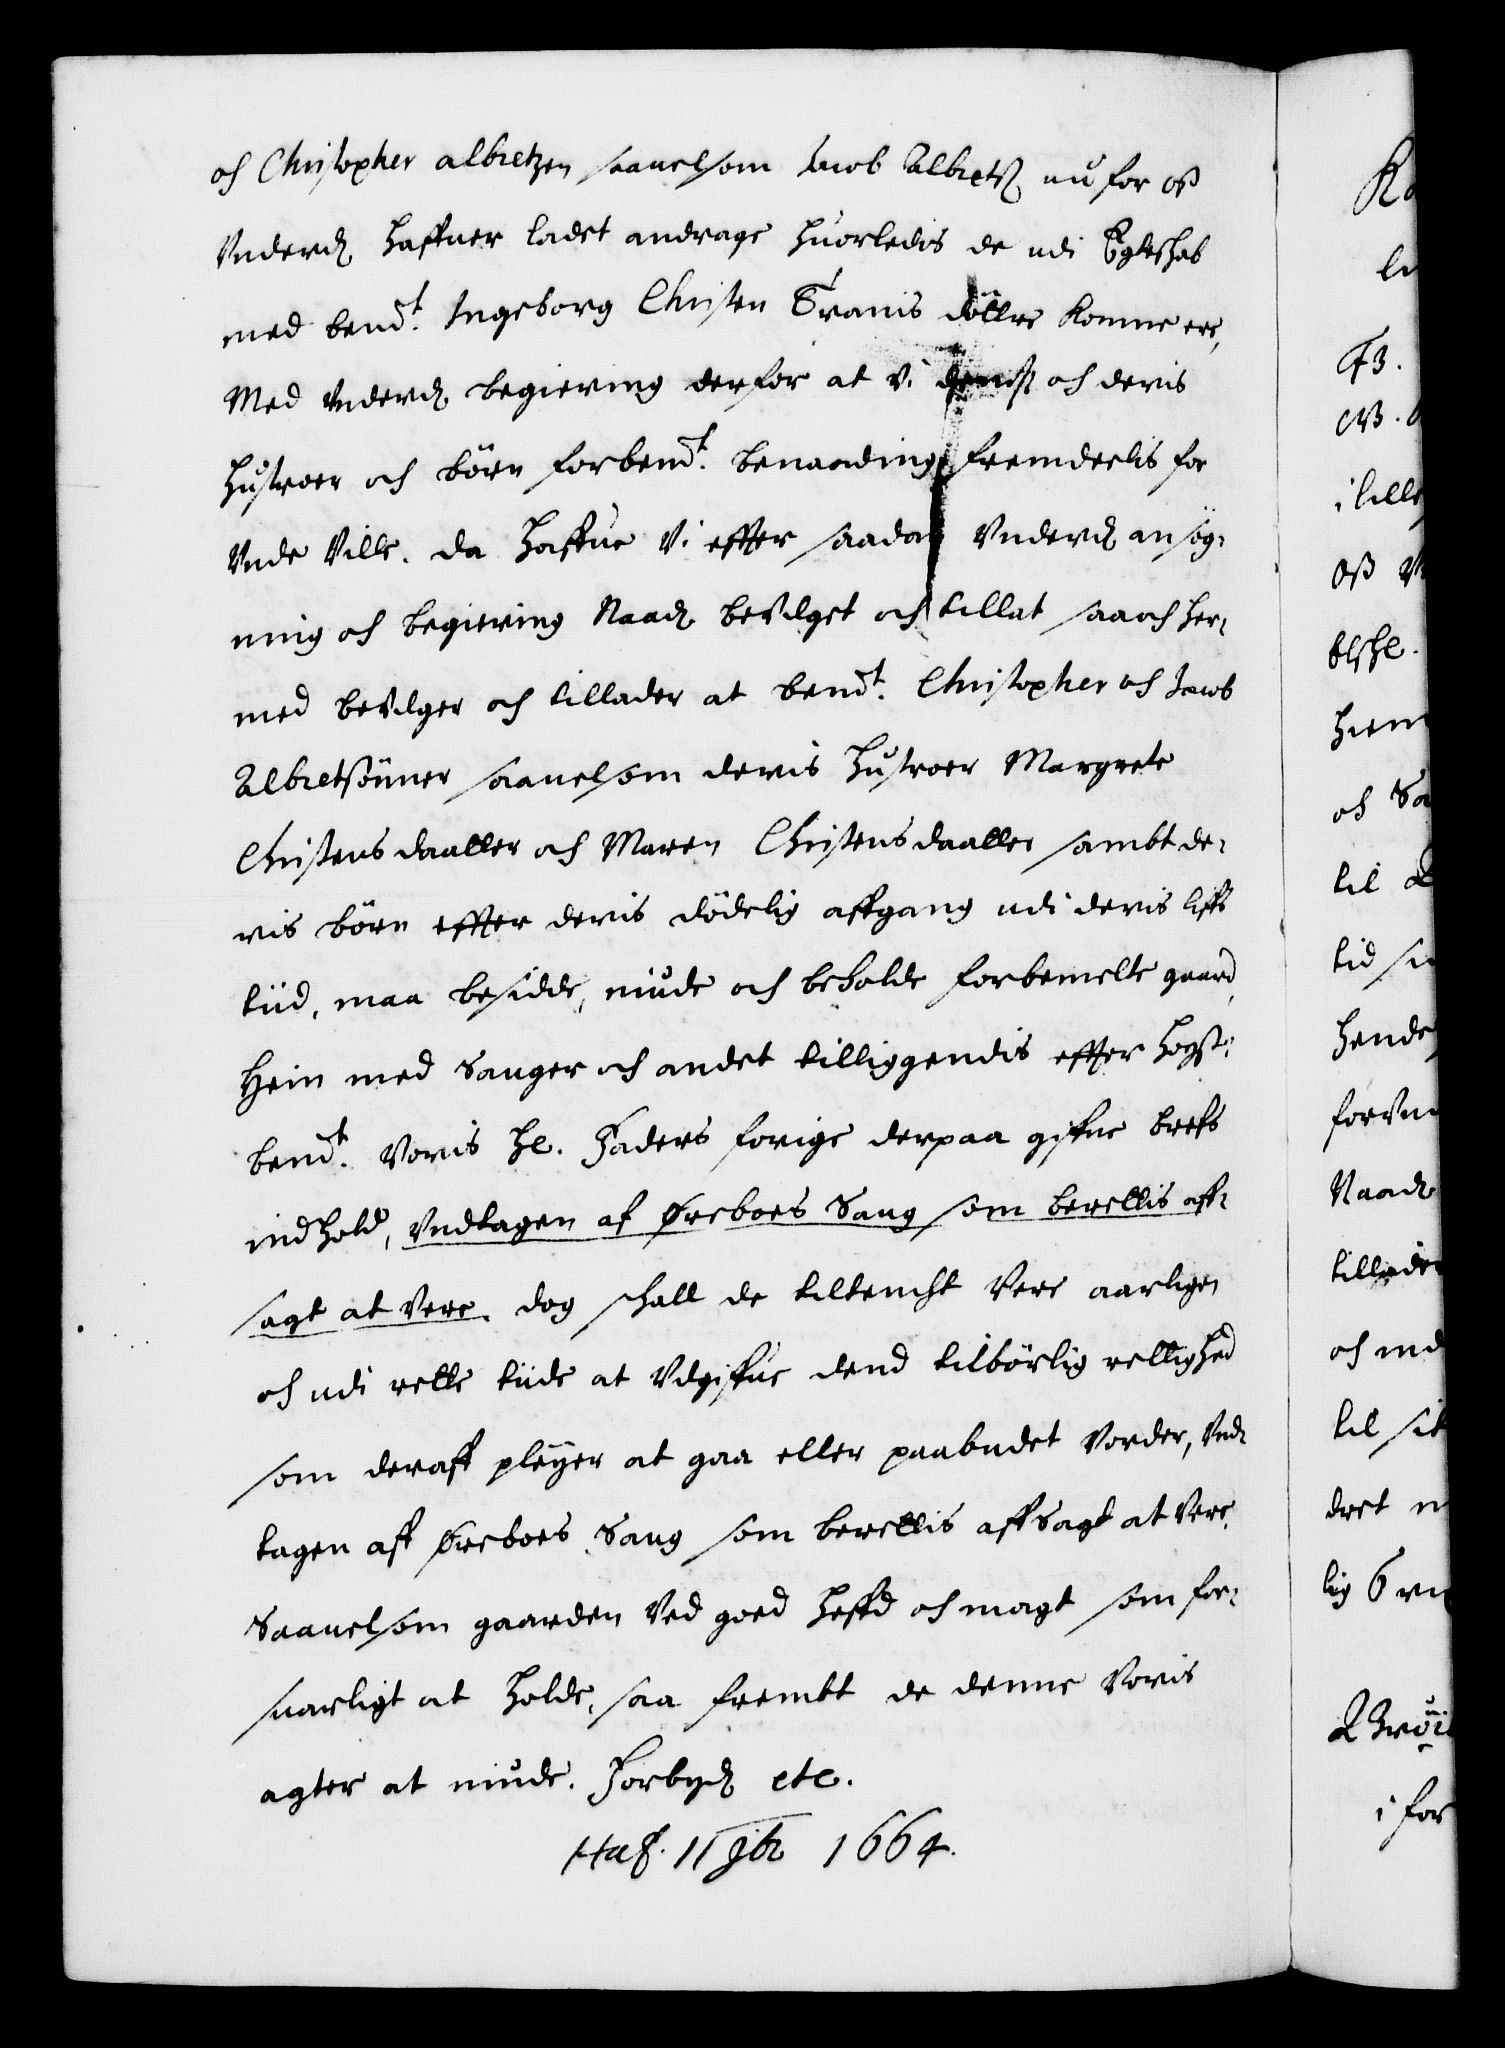 och Christopher albretzen saauelsom Jacob Albretß nu for oß
Vnderd haffuer ladet andrage huorledis de udi Egteschab
med bemt. Ingeborg Christen Tranis döttre komne ere,
Med Vnderd begiering derfor at Vi dennem och deris
hustroer och börn forbemt. benaading fremdeelis for
Vnde Ville. da haffue Vi effter saadan Vnderd ansög-
ning och begiering Naad beVilget och tillat saa och her-
med beVilger och tillader at bemt. Christopher och Jacob
Albretsönner saauelsom deris hustroer Margrete
Christensdaatter och Maren Christensdaatter sambt de-
ris börn effter deris dödelig affgang udi deris liffs
tiid, maa besidde, niude och beholde forbemelte gaard
Hein med Sauger och andet tilliggendis effter högst-
bemt. Voris hl. Faders forige derpaa gifne brefs
indhold, Vndtagen af Öreboes Saug som berettis aff-
sagt at Vere. dog schall de tiltencht Vere aarligen
och udi rette tiide at Vdgiffue dend tilbörlig rettighed
som deraff pleyer at gaa eller paabudet Vorder, Vnd-
tagen aff Öreboes Saug som berettis affsagt at Vere,
Saauelsom gaarden Ved goed heffd och magt som for-
suarligt at holde, saa frembt de denne Voris
agter at niude. Forbyd etc.
Haf. 11 Jbr 1664.